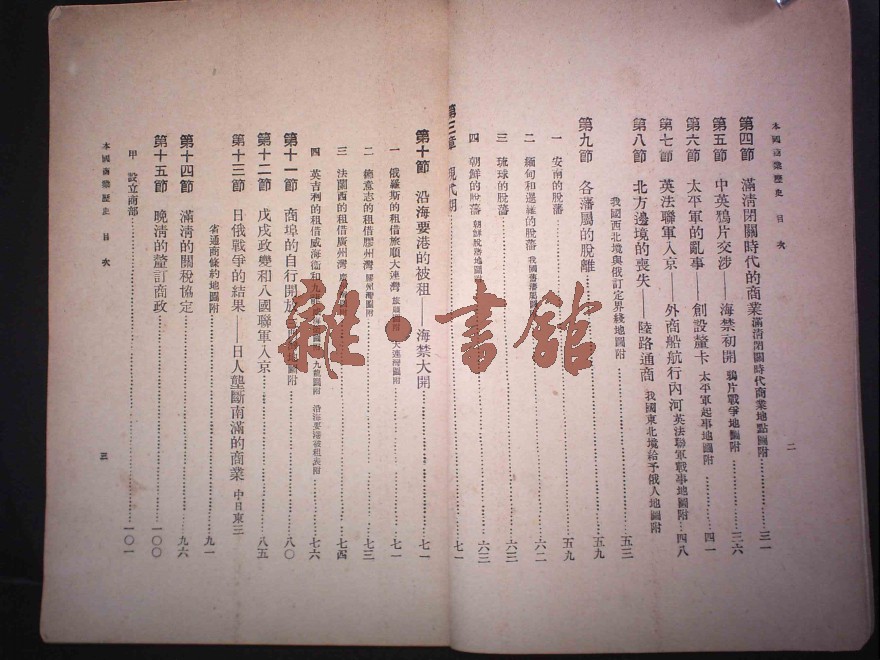 本國商業歷史 目次 二
第四節 滿清閉關時代的商業 滿清閉關時代商業地點圖附 三一
第五節 中英鴉片交涉——海禁初開 鴉片戰爭地圖附 三六
第六節 太平軍的亂事——創設釐卡 太平軍起事地圖附 四一
第七節 英法聯軍入京——外商船航行內河 英法聯軍戰事地圖附 四八
第八節 北方邊境的喪失——陸路通商 我國東北境給予俄人地圖附
我國西北境與俄訂定界綫地圖附 五三
第九節 各藩屬的脫離 五九
一 安南的脫藩 五九
二 緬甸和暹羅的脫藩 我國舊藩屬圖附 六二
三 琉球的脫藩 六三
四 朝鮮的脫藩 朝鮮脫藩地圖附 六三
第三章 現代期 七一
第十節 沿海要港的被租——海禁大開 七一
一 俄羅斯的租借旅順大連灣 旅順圖附 大連灣圖附 七一
二 德意志的租借膠州灣 膠州灣圖附 七三
三 法蘭西的租借廣州灣 七四
四 英吉利的租借威海衞和九龍 九龍圖附 沿海要港被租表附 七六
第十一節 商埠的自行開放 地圖附 八〇
第十二節 戊戌政變和八國聯軍入京 八五
第十三節 日俄戰爭的結果——日人壟斷南滿的商業 中日東三
省通商條約地圖附 九一
第十四節 滿清的關稅協定 九六
第十五節 晚清的釐訂商政 一〇〇
甲 設立商部 一〇一
本國商業歷史 目次 三
雜·書館